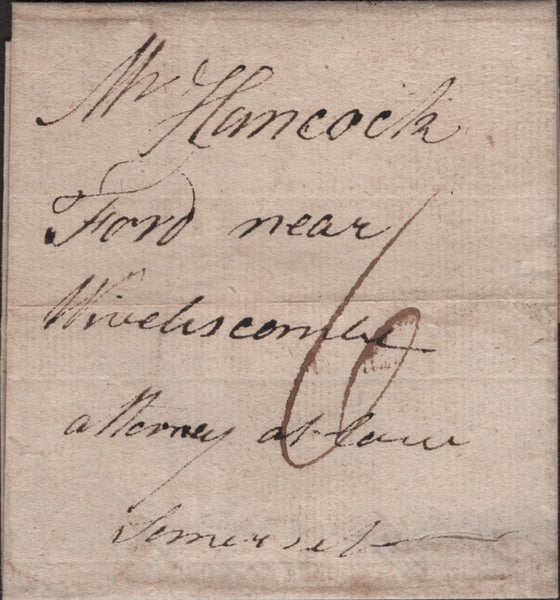 Mr Hancock
Ford near
Wiveliscombe
6
attorney at law
Somerset